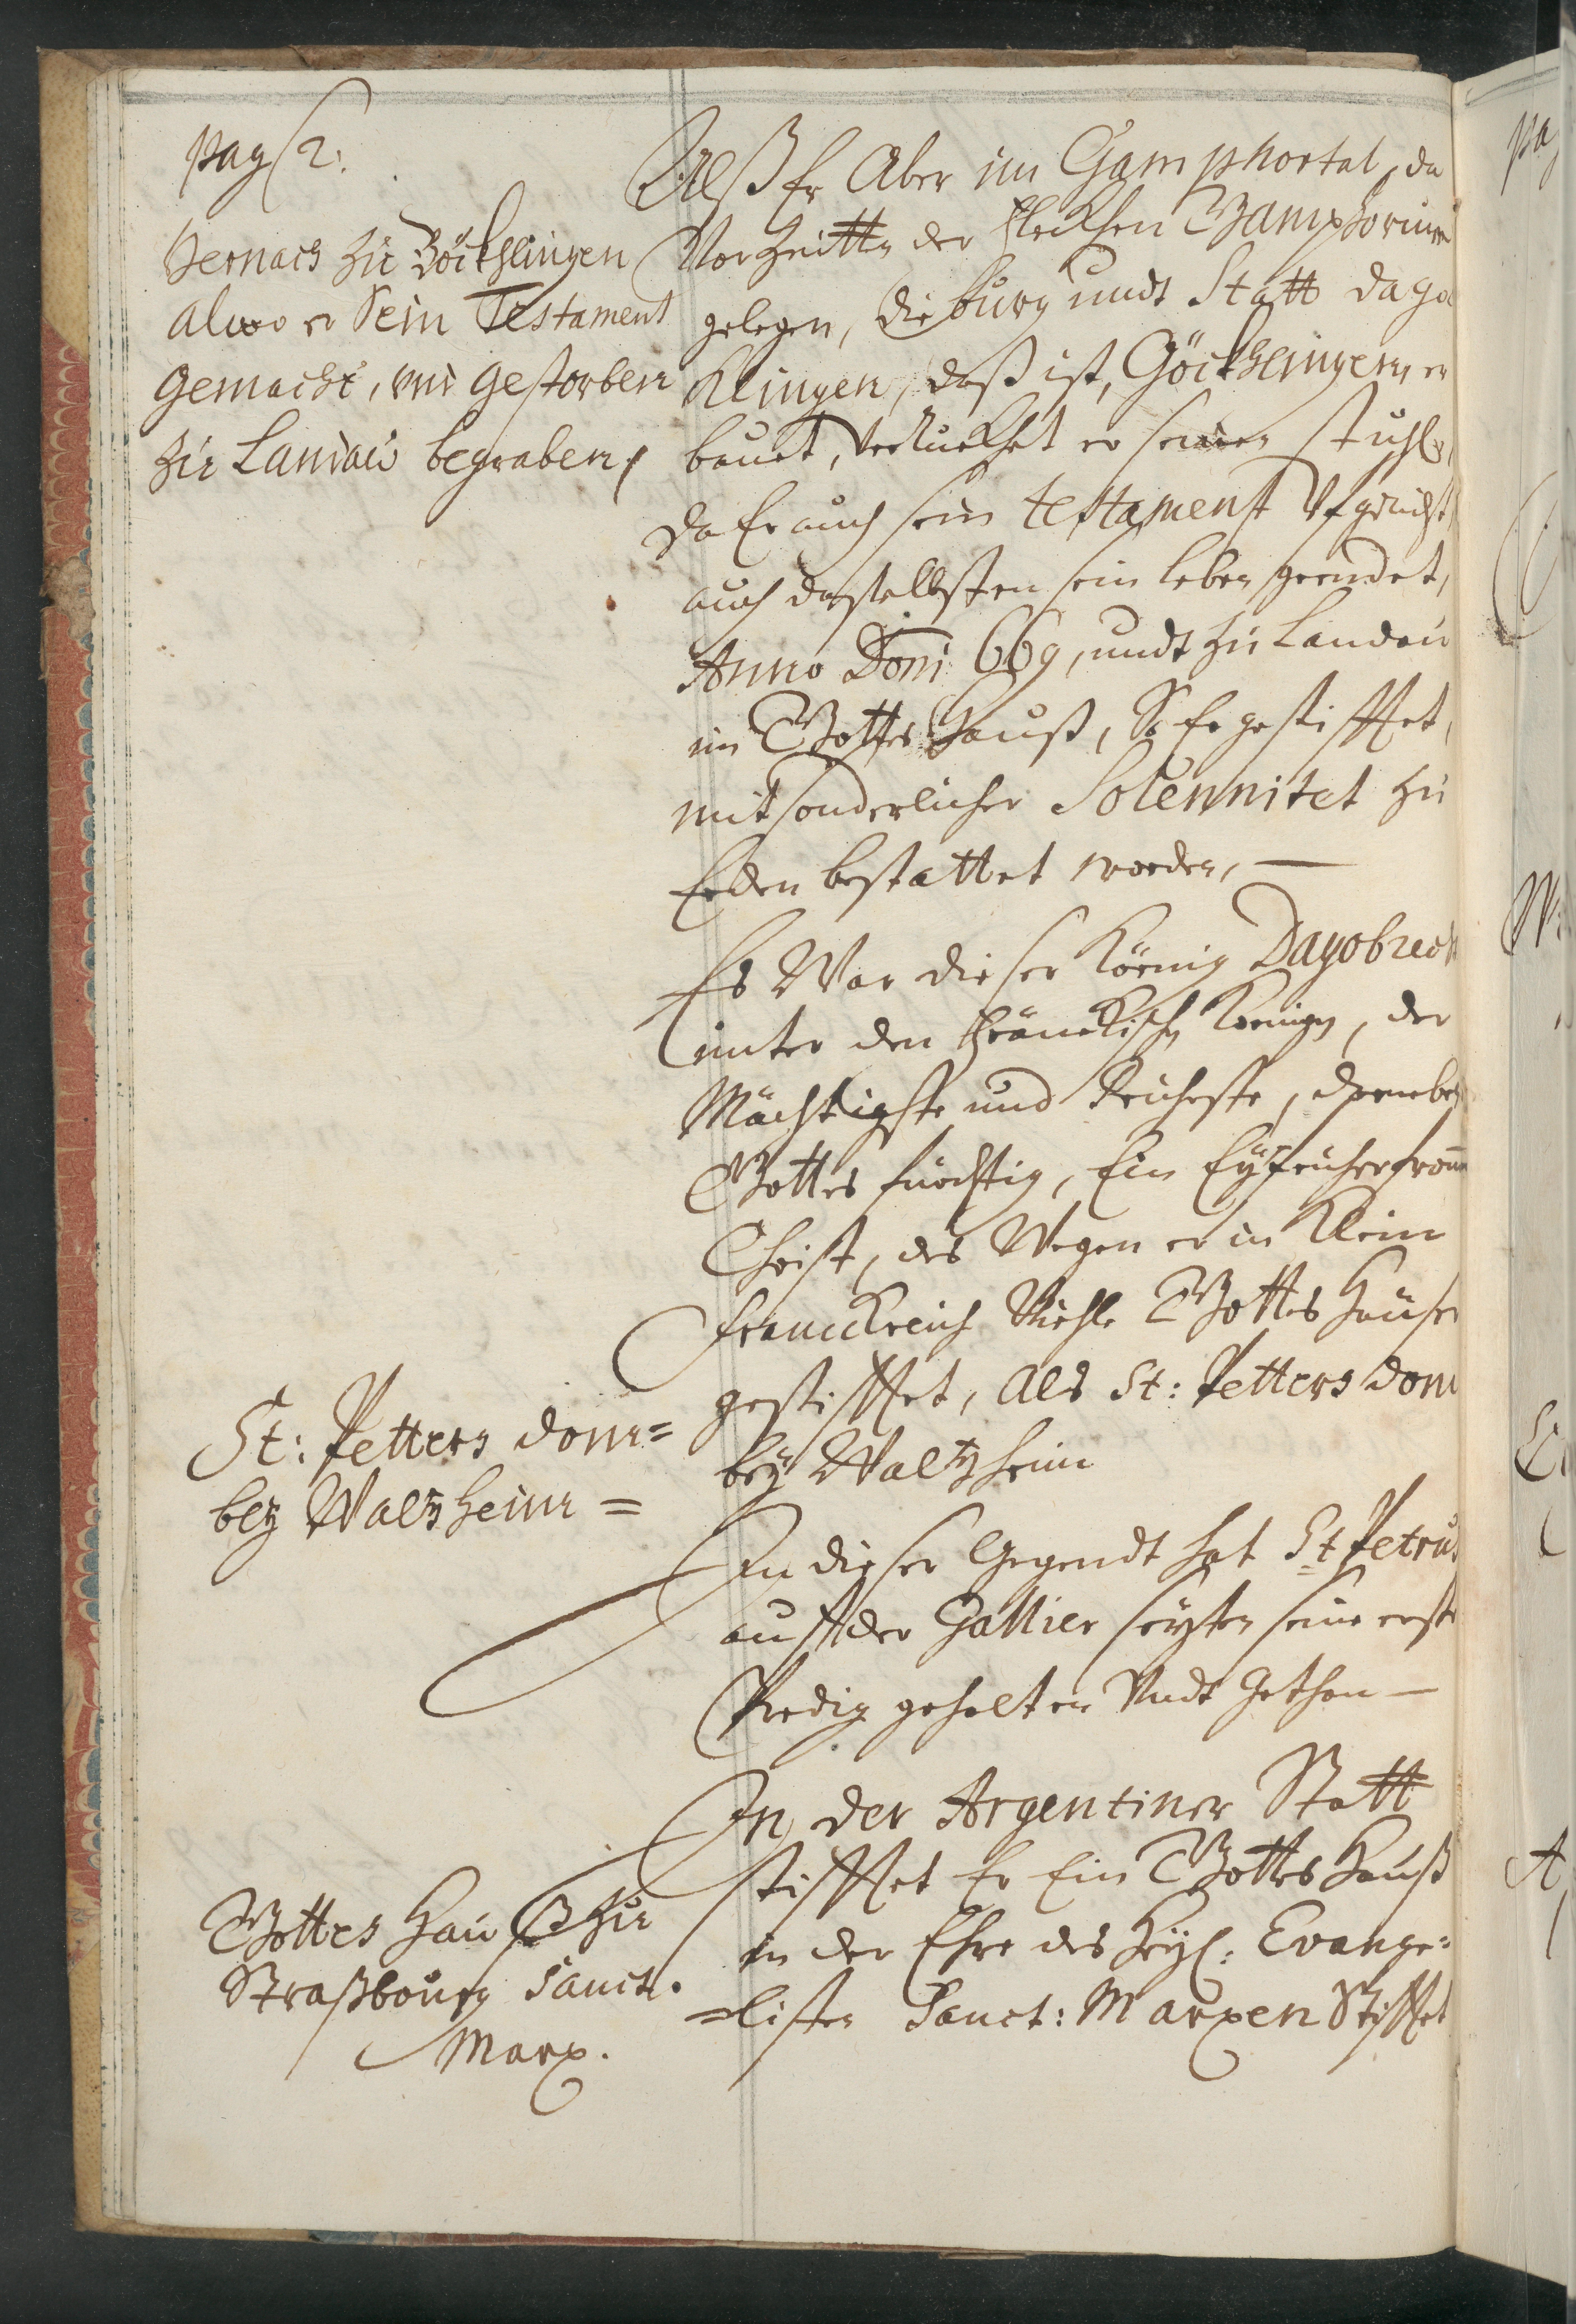 pag 2.
Hernach zu Böckhlingen
alwo er Sein Testament
gemacht, und gestorben
zu Landau begraben,
Alß Er Aber im Gamphortal, da
Vor Zeitten der Fleckhen Gamphorium
gelegen, die burg undt Statt Dago
Klingen, daß ist, Göckhlingen, er
bauet, Verruckhet er seinen stuhl,
da Er auch sein testament Vfgericht
auch daselbsten sein leben geendet,
Anno Doni 669, undt zu Landau
im Gottes Hauß, So Er gestifftet,
mit sonderlicher Solennitet zu
Erden bestattet worden, —
Es War dieser König Dagobrecht
unter den Fränckischen Königen, der
Mächtigste und Reicheste, darneben
Gottes fürchtig, Ein Eyfericher fromm
Christ, des Wegen er in Klein
Franckreich Viehle Gottes Häuser
gestifftet, Als St: Petters dom
bey Waltzheim
St: Petters dom=
bey Waltzheim =
In dieser Gegendt hat St Petrus
auff der Gallier seyten seine erste
Predig gehalten Undt gethan —
In der Argentiner Statt
stifftet Er Ein Gottes Hauß
in der Ehre des Heyl: Evange=
=listen Sanct: Marxen Stifftet
Gottes Hauß zu
Straßbourg Sanct.
Marx.